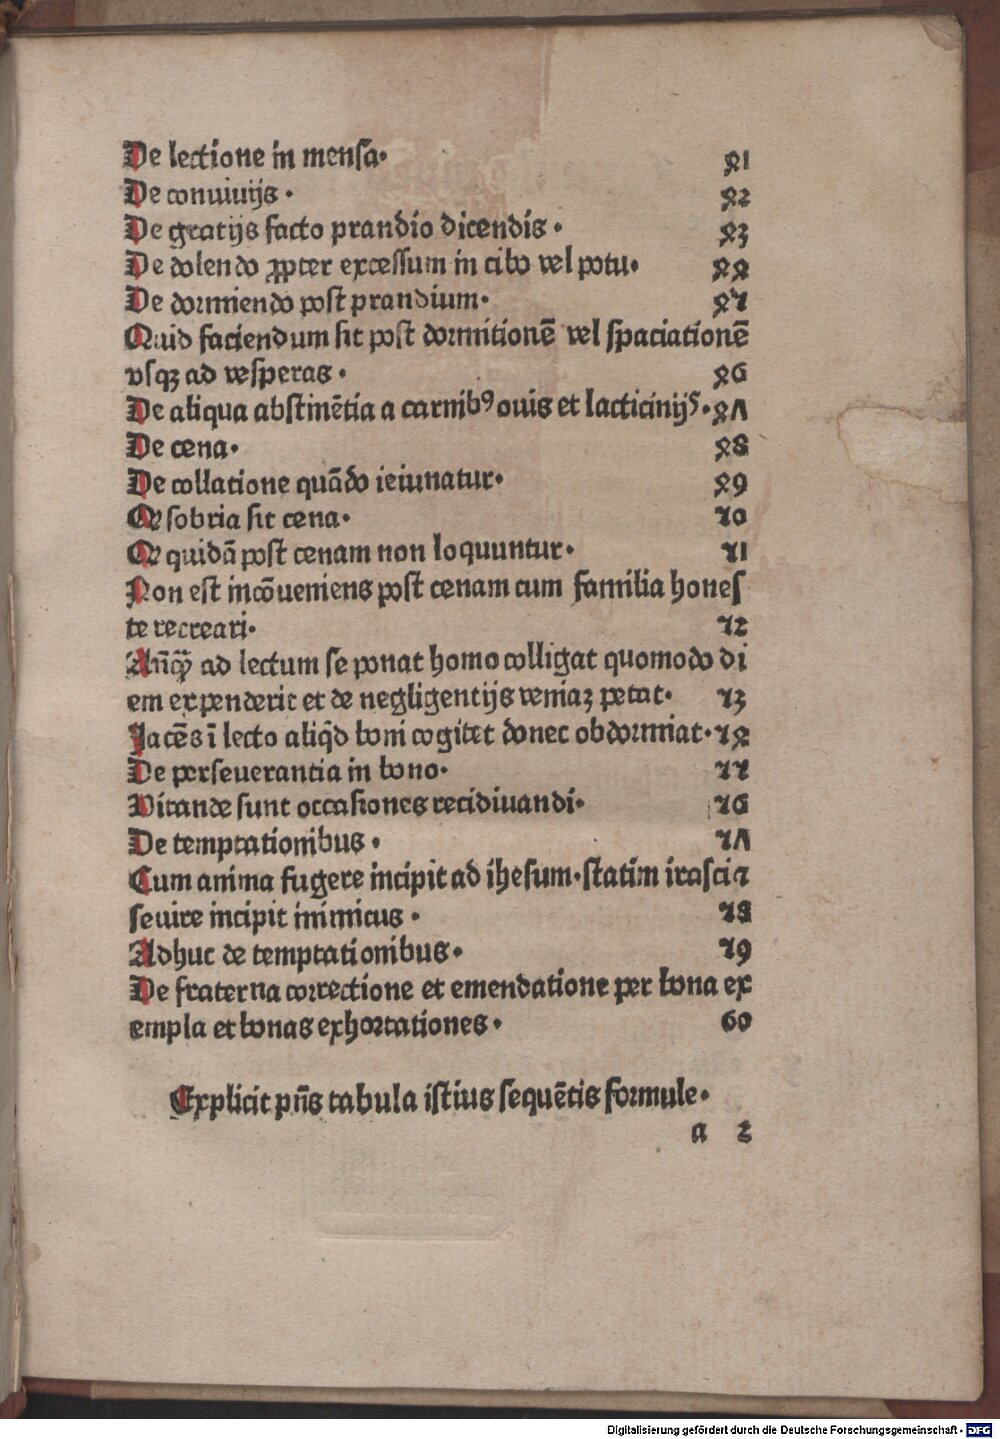 De lectione in mensa· 41
De conuiuijs · 42
De gratijs facto prandio dicendis · 43
De dolendo ꝓpter excessum in cibo vel potu· 44
De dormiendo post prandium· 45
Quid faciendum sit post dormitionē vel spaciationē
vsqꝫ ad vesperas · 46
De aliqua abstinētia a carnibꝰ ouis et lacticinijs· 47
De cena· 48
De collatione quādo ieiunatur· 49
Ꝙ sobria sit cena· 50
Ꝙ quidā post cenam non loquuntur· 51
Non est incōueniens post cenam cum familia hones
te recreari· 52
Anꝙ̄ ad lectum se ponat homo colligat quomodo di
em expenderit et de negligentijs veniaꝫ petat· 53
Jacēs ī lecto aliqͥd boni cogitet donec obdormiat· 54
De perseuerantia in bono· 55
Vitande sunt occasiones recidiuandi· 56
De temptationibus · 57
Cum anima fugere incipit ad ihesum· statim irasci ⁊
seuire incipit inimicus · 58
Adhuc de temptationibus· 59
De fraterna correctione et emendatione per bona ex
empla et bonas exhortationes · 60
Explicit pn̄s tabula istius sequētis formule·
a 2
Digitalisierung gefördert durch die Deutsche Forschungsgemeinschaft · DFG